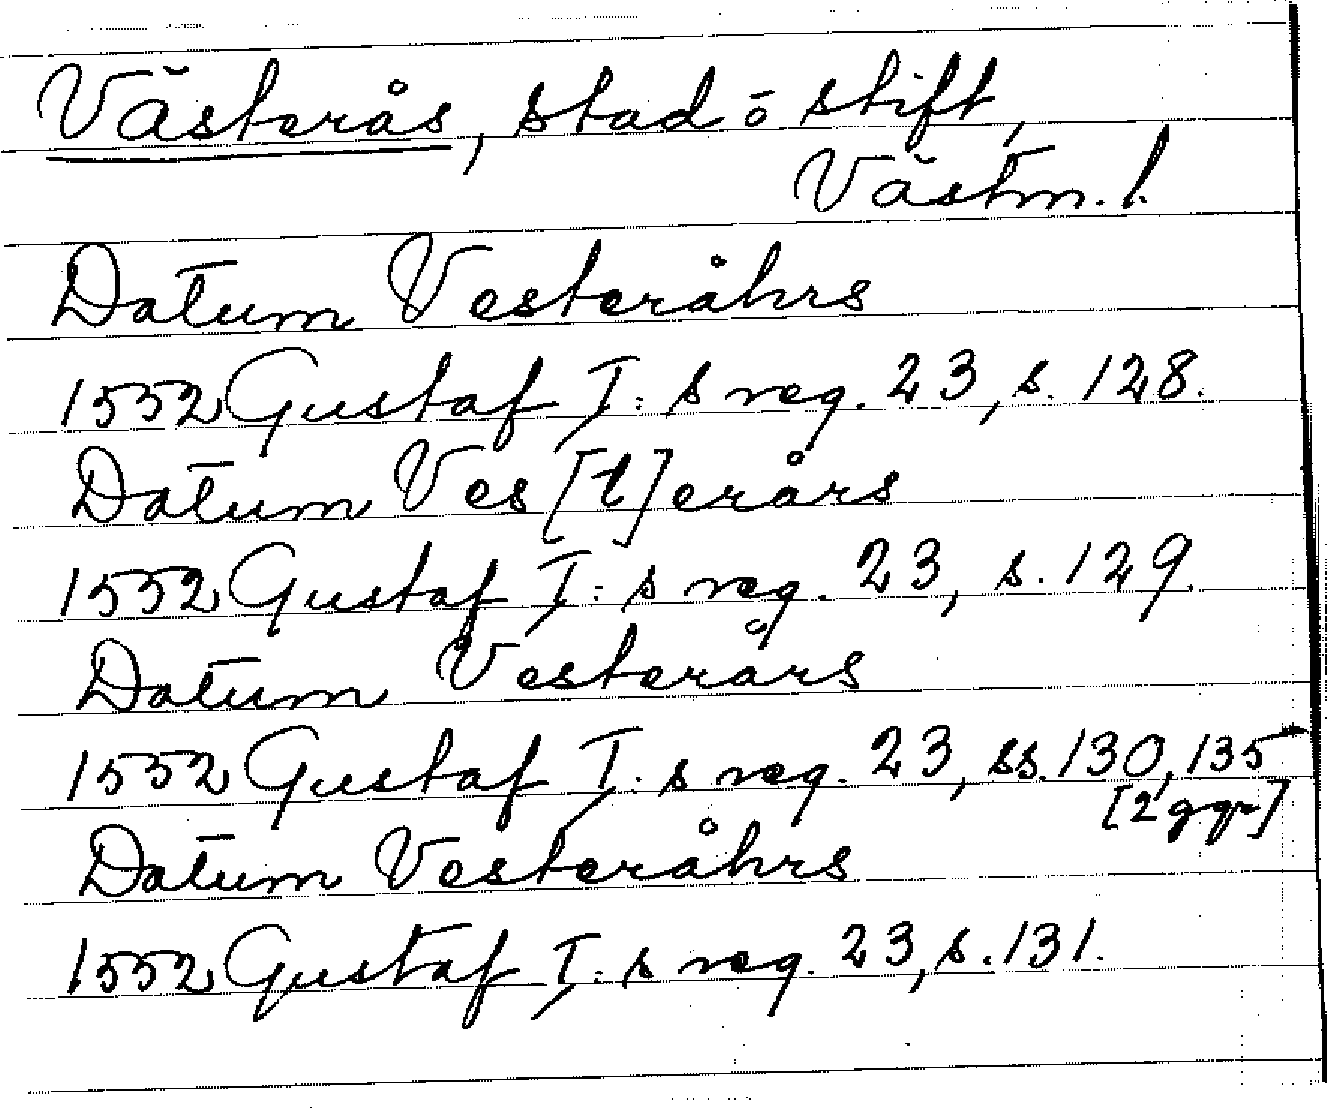 Västerås, stad ō stift,
Västm. l.
Datum Vesteråhrs
1552 Gustaf I: s reg. 23, s. 128.
Datum Ves[t]erårs
1552 Gustaf I: s reg. 23, s. 129.
Datum Vesterårs
1552 Gustaf I: s reg. 23, ss. 130, 135
[2 ggr]
Datum Vesteråhrs
1552 Gustaf I: s reg. 23, s. 131.